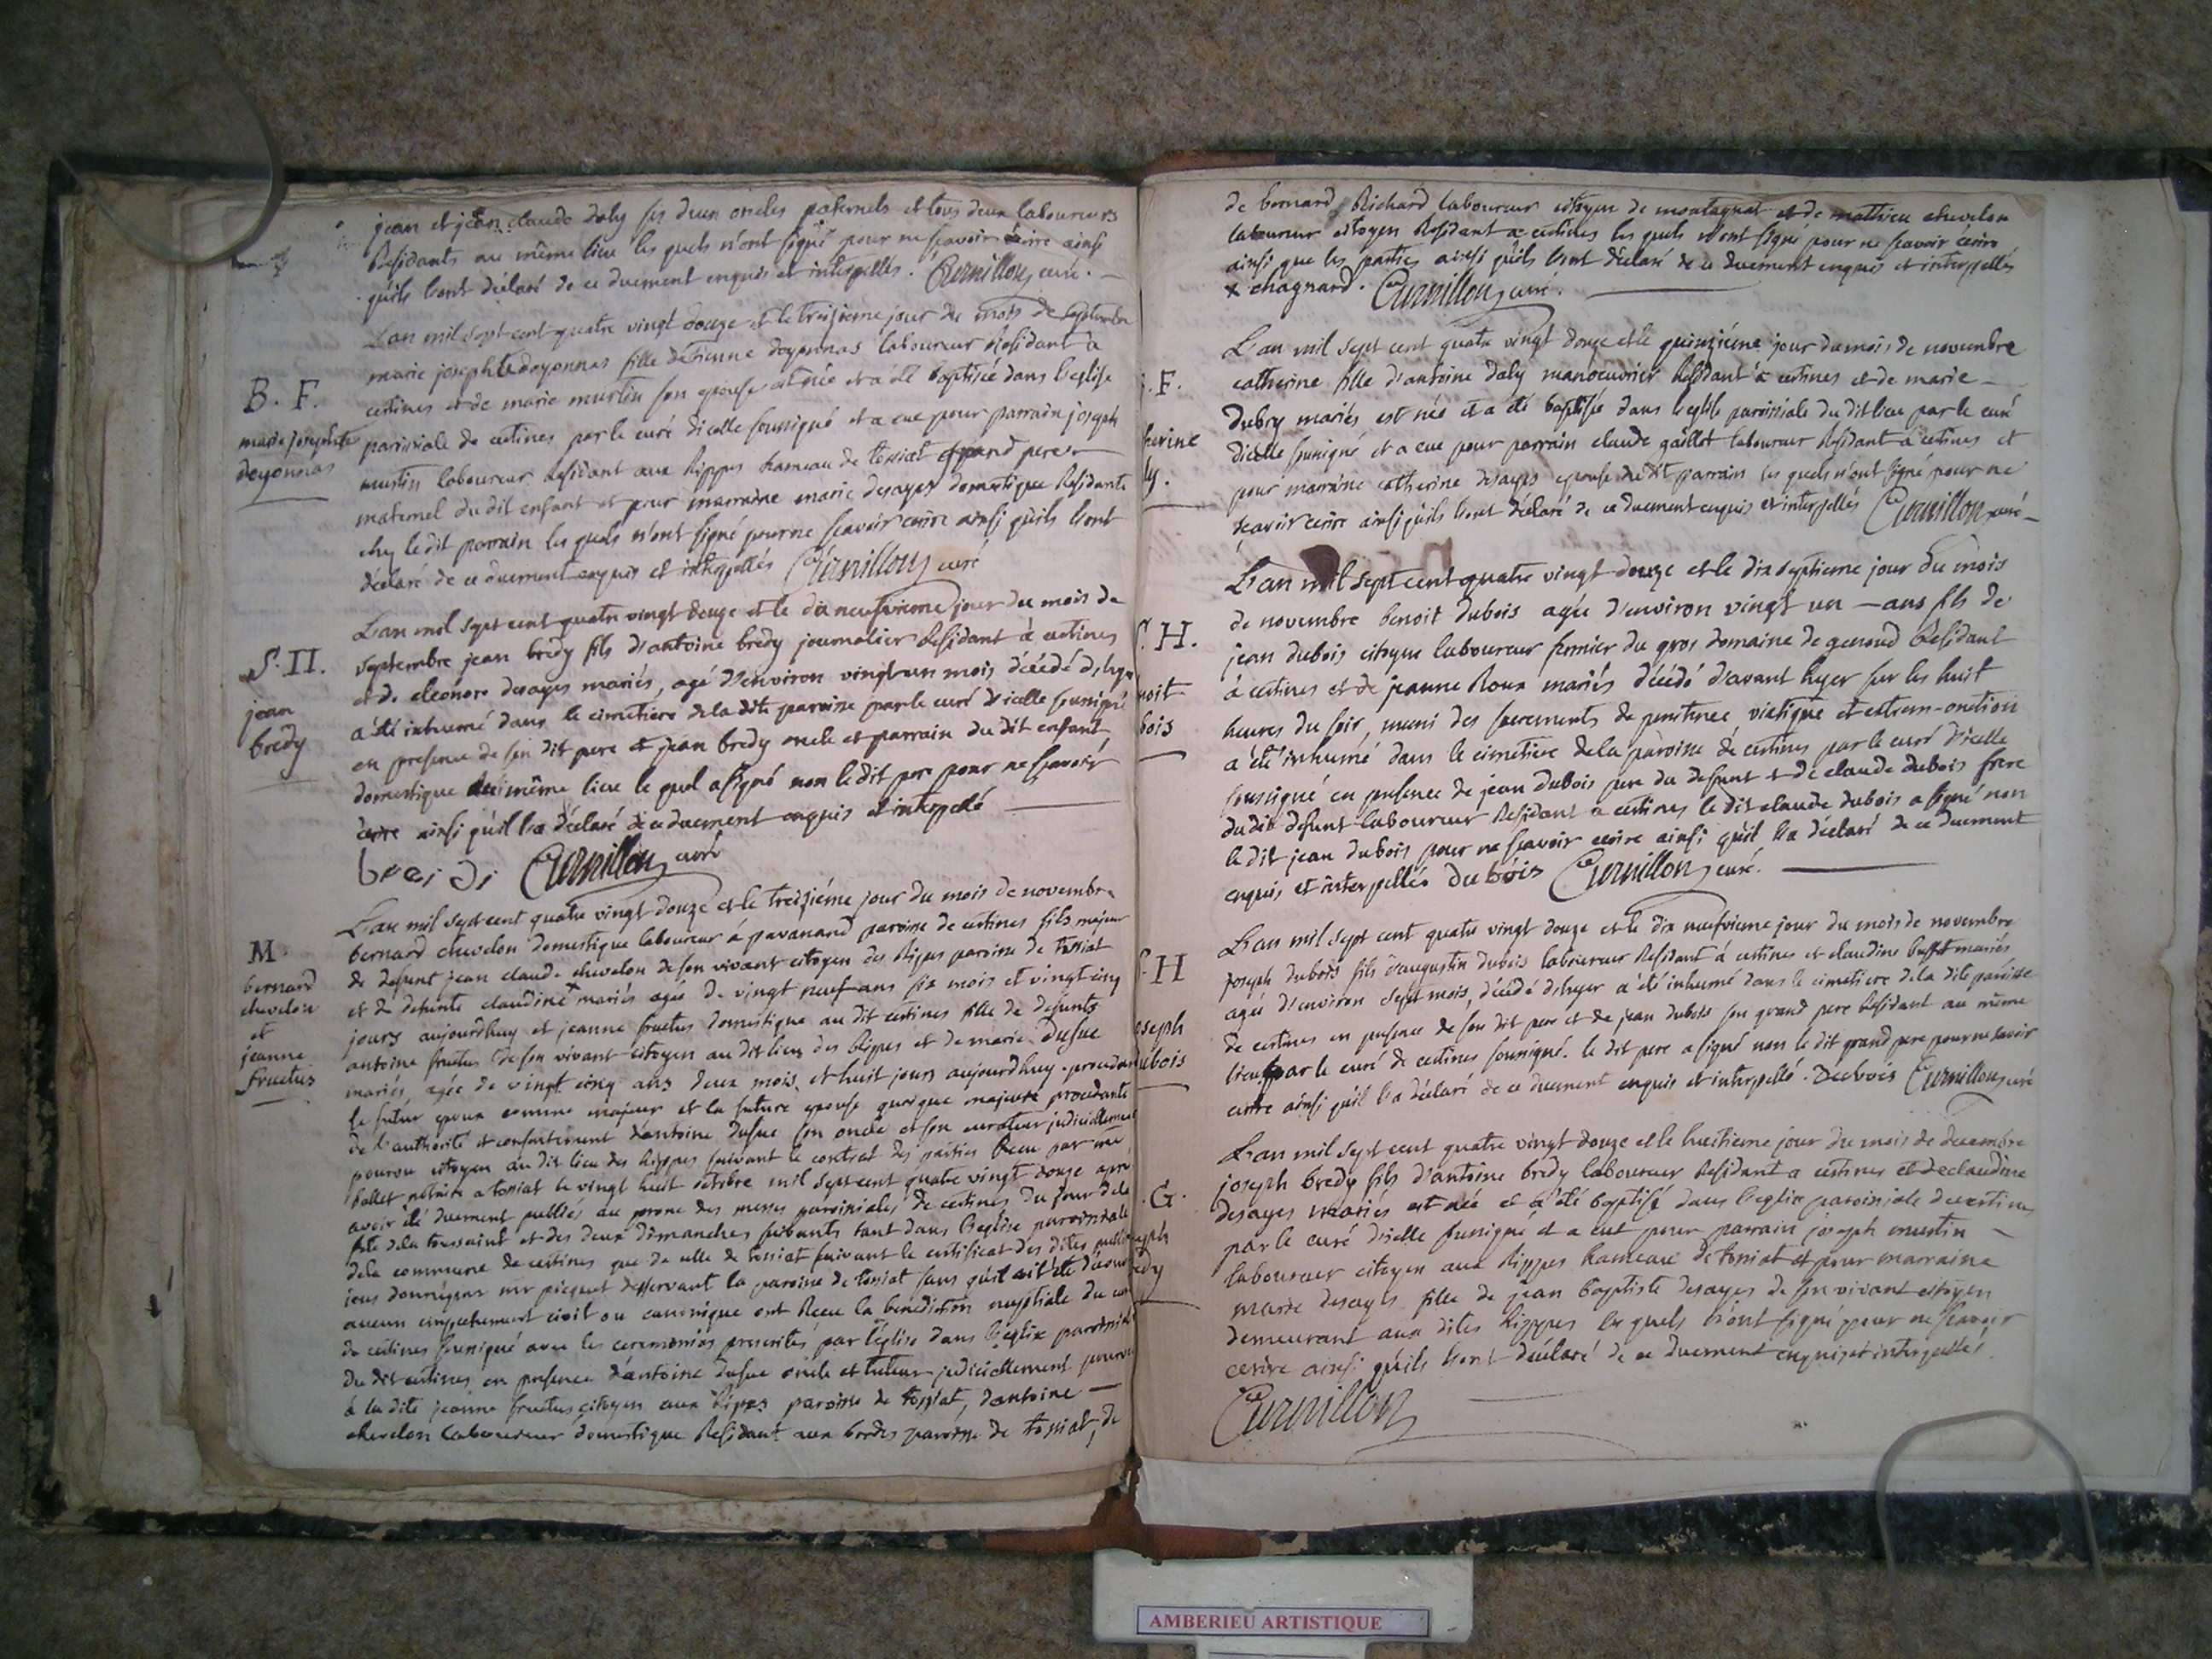 jean et jean claude daly ses deux oncles paternels et tous deux laboureurs
Residants au même lieu les quels n'ont signé pour ne scavoir écrire ainsi
qu'ils l'ont déclaré de ce duement enquis et interpellés. Curnillon curé.
L'an mil sept cent quatre vingt douze et le treizieme jour du mois de septembre
marie josephte doyonnas fille d'etienne doyonnas laboureur Residant a
certines et de marie murtin son epouse est née et a été baptisée dans l'eglise
paroissiale de certines par le curé d'icelle soussigné et a eue pour parrain joseph
murtin laboureur Residant aux Rippes hameau de tossiat grand pere
maternel du dit enfant et pour marraine marie desayes domestique Residante
chez le dit parrain les quels n'ont signé pour ne scavoir ecrire ainsi qu'ils l'ont
déclaré de ce duement enquis et interpellés Curnillon curé
B. F.
marie josephte
doyonnas
L'an mil sept cent quatre vingt douze et le dix neufvieme jour du mois de
septembre jean bredy fils d'antoine bredy journalier Residant à certines
et de eleonore desayes mariés, agé d'environ vingt un mois décédé d'hyer
a été inhumé dans le cimetiere de la dite paroisse par le curé d'icelle soussigné
en presence de son dit pere et jean bredy oncle et parrain du dit enfant
domestique au même lieu le quel a signé non le dit pere pour ne scavoir
écrire ainsi qu'il l'a déclaré de ce duement enquis et interpellé
breidi Curnillon curé
S. H.
jean
bredy
L'an mil sept cent quatre vingt douze et le treizième jour du mois de novembre
bernard chevelon domestique laboureur à pavanand paroisse de certines fils majeur
de defunt jean claude chevelon de son vivant citoyen des Rippes paroisse de tossiat
et de defunte claudine mariés agée de vingt neuf ans six mois et vingt cinq
jours aujourdhuy et jeanne fructus domestique au dit certines fille de defunts
antoine fructus de son vivant citoyen au dit lieu des Rippes et de marie dufue
mariés, agée de vingt cinq ans deux mois et huit jours aujourdhuy. procedant
le futur epoux comme majeur et la future epouse quoique majeure procedante
de l'authorité et consentement d'antoine dufue son oncle et son curateur judiciellement
pourvu citoyen au dit lieu des Rippes suivant le contrat des parties Recu par me
notaire a tossiat le vingt huit octobre mil sept cent quatre vingt douze apres
avoir été duement publiés au prone des messes paroissiales de certines du jour de la
fete de la toussaint et des deux dimanches suivants tant dans l'eglise paroissiale
de la commune de certines que de celle de tossiat suivant le certificat des dites publi
ions donné par mr picquet desservant la paroisse de tossiat sans qu'il ait été
aucun empechement civil ou canonique ont Recu la benediction nuptiale du curé
de certines soussigné avec les ceremonies prescrites par l'église dans l'eglise paroissiale
du dit certines en presence d'antoine dufue oncle et tuteur judiciellement pourvu
à la dite jeanne fructus citoyen aux Rippes paroisse de tossiat, d'antoine
chevelon laboureur domestique Residant aux bordes paroisse de tossiat, de
M.
bernard
chevelon
et
jeanne
fructus
de bernard Richard laboureur citoyen de montagnat et de mathieu chevelon
laboureur citoyen Residant a certines les quels n'ont signé pour ne scavoir écrire
ainsi que les parties ainsi qu'ils l'ont déclaré de ce duement enquis et interpellés
x chagnard. Curnillon curé.
L'an mil sept cent quatre vingt douze et le quinzième jour du mois de novembre
catherine fille d'antoine daly manoeuvrier Residant a certines et de marie
dubry mariés est née et a été baptisée dans l'eglise paroissiale du dit lieu par le curé
d'icelle soussigné et a eue pour parrain claude gaillot laboureur Residant a certines et
pour marraine catherine desayes epouse du dit parrain les quels n'ont signé pour ne
scavoir ecrire ainsi qu'ils l'ont déclaré de ce duement enquis et interpellés Curnillon curé
. F.
herine
ly.
L'an mil sept cent quatre vingt douze et le dix septieme jour du mois
de novembre benoit dubois agée d'environ vingt un ans fils de
jean dubois citoyen laboureur fermier du gros domaine de genoud Residant
à certines et de jeanne Roux mariés décédé d'avant hyer sur les huit
heures du soir, muni des sacrements de penitence viatique et extrem-onction
a été inhumé dans le cimetiere de la paroisse de certines par le curé d'icelle
soussigné en presence de jean dubois pere du defunt et de claude dubois frere
du dit defunt laboureur Residant a certines le dit claude dubois a signé non
le dit jean dubois pour ne scavoir ecrire ainsi qu'il l'a déclaré de ce duement
enquis et interpellés Dubois Curnillon curé.
. H.
noit
bois
L'an mil sept cent quatre vingt douze et le dix neufvieme jour du mois de novembre
joseph dubois fils d'augustin dubois laboureur Residant à certines et claudine buffet mariés
agée d'environ sept mois, décédé d'hyer a été inhumé dans le cimetiere de la dite paroisse
de certines en presence de son dit pere et de jean dubois son grand pere Residant au même
lieu par le curé de certines soussigné. le dit pere a signé non le dit grand pere pour ne scavoir
ecrire ainsi qu'il l'a déclaré de ce duement enquis et interpellé. Dubois Curnillon curé
. H
oseph
ubois
L'an mil sept cent quatre vingt douze et le huitieme jour du mois de decembre
joseph bredy fils d'antoine bredy laboureur Residant a certines et de claudine
desayes mariés est née et a été baptisé dans l'eglise paroissiale de certines
par le curé d'icelle soussigné et a eut pour parrain joseph murtin
laboureur citoyen aux Rippes hameau de tossiat et pour marraine
marie desayes fille de jean baptiste desayes de son vivant citoyen
demeurant aux dites Rippes les quels n'ont signé pour ne scavoir
ecrire ainsi qu'ils l'ont déclaré de ce duement enquis et interpellés.
Curnillon
. G.
seph
edy
AMBERIEU ARTISTIQUE